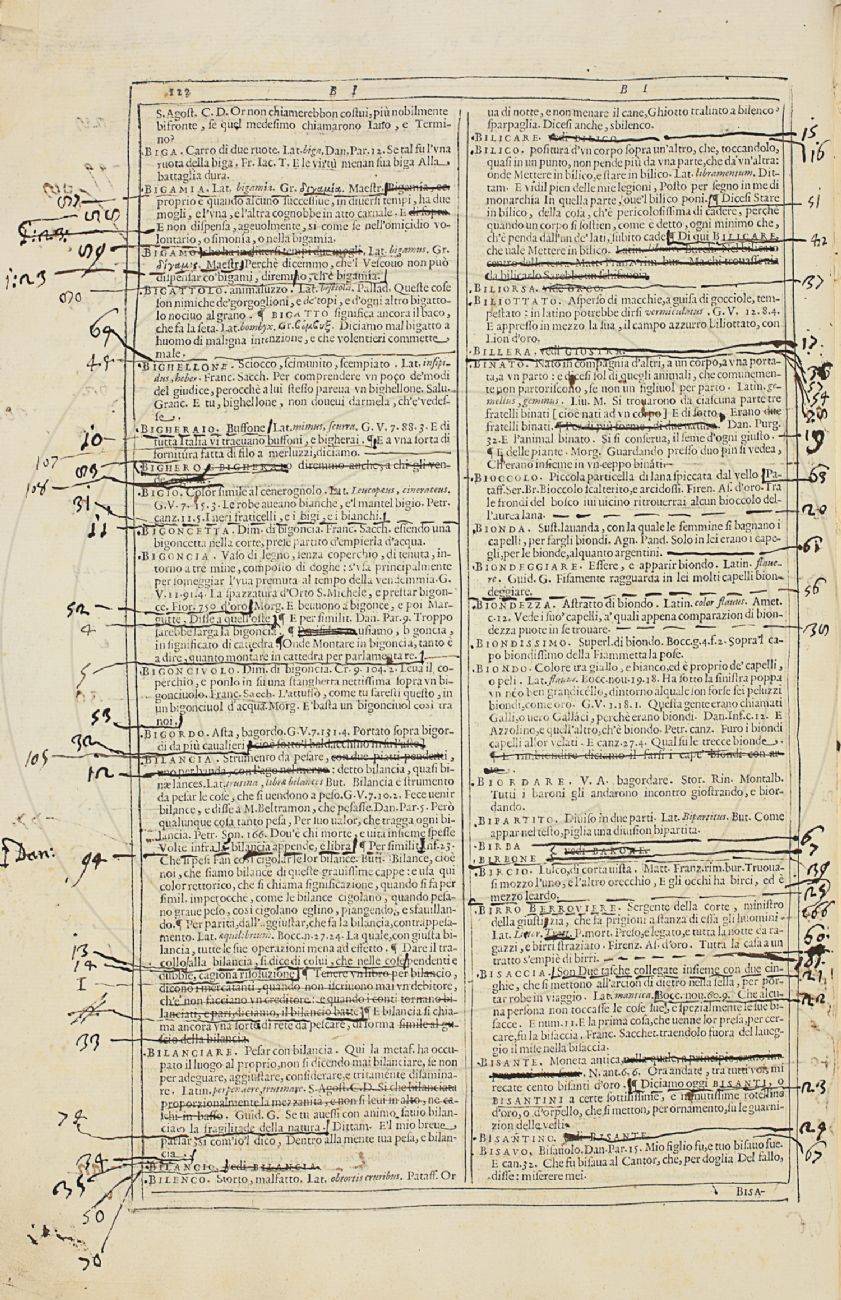 122 B I B I
S. Agost. C. D. Or non chiamerebbon costui, più nobilmente
bifronte, se quel medesimo chiamarono Iano, e Termi-
no?
BIGA. Carro di due ruote. Lat. biga, Dan. Par. 12. Se tal fu l'vna
ruota della biga, Fr. Iac. T. E le virtù menan sua biga Alla
battaglia dura.
BIGAMIA. Lat. bigamia. Gr. διγαμία. Maestr. Bigamia, ec.
proprio è quando alcuno successiue, in diuersi tempi, ha due
mogli, e l'vna, e l'altra cognobbe in atto carnale. E di sopra.
E non dispensa, ageuolmente, sì come fe nell'omicidio vo-
lontario, o simonia, o nella bigamia.
BIGAMO Lat. bigamus. Gr.
δίγαμος. Maestr. Perchè dicemmo, che'l Vescouo non può
dispensar co' bigami, diremo, ch'è bigamia.
BIGATTOLO. animaluzzo. Lat. Pallad. Queste cose
son nimiche de'gorgoglioni, e de'topi, e d'ogni altro bigatto-
lo nociuo al grano. ¶ BIGATTO significa ancora il baco,
che fa la seta. Lat. bombyx. Gr. Diciamo mal bigatto a
huomo di maligna intenzione, e che volentieri commette
male.
BIGHELLONE. Sciocco, scimunito, scempiato. Lat. insipi-
dus, hebes. Franc. Sacch. Per comprendere vn poco de'modi
del giudice, perocchè a lui stesso pareua vn bighellone. Salu.
Granc. E tu, bighellone, non doueui darmela, ch'e'vedes-
se
BIGHERAIO. Buffone Lat. mimus, scurra. G. V. 7. 88. 3. E di
tutta Italia vi traeuano buffoni, e bigherai. ¶ E a vna sorta di
fornitura fatta di filo a merluzzi, diciamo.
BIGHERO, e BIGHERAIO diremmo anche, a chi gli ven-
BIGIO. Color simile al cenerognolo. Lat. Leucopaeus, cineraceus.
G. V. 7. 15. 3. Le robe aueano bianche, e'l mantel bigio. Petr.
canz. 11. 5. I neri fraticelli, e i bigi, e i bianchi.
BIGONCETTA. Dim. di bigoncia. Franc. Sacch. essendo vna
bigoncetta nella corte, prese partito d'empierla d'acqua.
BIGONCIA. Vaso di legno, senza coperchio, di tenuta, in-
torno a tre mine, composto di doghe: s'vsa principalmente
per someggiar l'vua premuta al tempo della vendemmia. G.
V. 11. 91. 4. La spazzatura d'Orto S. Michele, e prestar bigon-
ce. Fior. 750 d'oro Morg. E beuono a bigonce, e poi Mar-
gutte, Disse a quell'oste ¶ E per similit. Dan. Par. 9. Troppo
sarebbe larga la bigoncia, ¶ vsiamo, bigoncia,
in significato di cattedra Onde Montare in bigoncia, tanto è
a dire, quanto montare in cattedra per parlamentare.
BIGONCIVOLO. Dim. di bigoncia. Cr. 9. 104. 2. Leua il co-
perchio, e ponlo in su vna stanghetta nettissima sopra vn bi-
gonciuolo. Franc. Sacch. L'attussò, come tu faresti questo, in
un bigonciuol d'acqua. Morg. E'basta un bigonciuol così tra
noi.
BIGORDO. Asta, bagordo. G. V. 7. 131. 4. Portato sopra bigor-
di da più caualieri
BILANCIA. Strumento da pesare, con due piatti pendenti,
: detto bilancia, quasi bi-
næ lances. Lat. trutina, libra bilances But. Bilancia è strumento
da pesar le cose, che si uendono a peso. G. V. 7. 10. 2. Fece uenir
bilance, e disse a M. Beltramon, che pesasse. Dan. Par. 5. Però
qualunque cosa tanto pesa, Per suo ualor, che tragga ogni bi-
lancia. Petr. Son. 166. Dou'è chi morte, e uita insieme spesse
Volte infra le bilance appende, e libra ¶ Per similit. Inf. 23.
Che li pesi Fan così cigolar le lor bilance. Buti. Bilance, cioè
noi, che siamo bilance di queste grauissime cappe: e usa qui
color rettorico, che si chiama significazione, quando si fa per
simil. imperocche, come le bilance cigolano, quando pesa-
no graue peso, così cigolano eglino, piangendo, e sfauillan-
do. ¶ Per parità, dall'aggiustar, che fa la bilancia, contrappesa-
mento. Lat. equilibrium. Bocc. n. 27. 24. La quale, con giusta bi-
lancia, tutte le sue operazioni mena ad effetto. ¶ Dare il tra-
collo alla bilancia, si dice di colui, che nelle cose pendenti e
dubbie, cagiona risoluzione ¶ Tenere vn libro per bilancio,
dicono i mercatanti, quando non iscriuono mai vn debitore,
ch'e'non facciano vn creditore: e quando i conti tornano bi-
lanciati, e pari, diciamo, il bilancio batte ¶ E bilancia si chia-
ma ancora vna sorta di rete da pescare, di forma simile al gu-
scio della bilancia.
BILANCIARE. Pesar con bilancia. Qui la metaf. ha occu-
pato il luogo al proprio, non si dicendo mai bilanciare, se non
per adeguare, aggiustare, considerare, e tritamente disamina-
re. Latin. perpendere, trutinare. S. Agost. C. D. Si che bilanciata
proporzionalmente la mezzanità, e non si leui in alto, ne ca-
schi in basso. Guid. G. Se tu auessi con animo, sauio bilan-
ciato la fragilitade della natura. Dittam. E'l mio breue
parlar, sì com'io'l dico, Dentro alla mente tua pesa, e bilan-
cia:
BILANCIO. vedi BILANCIA.
BILENCO. Storto, malfatto. Lat. obtortis cruribus. Pataff. Or
ua di notte, e non menare il cane, Ghiotto tralinto a bilenco
sparpaglia. Dicesi anche, sbilenco.
BILICARE. vedi BILICO.
BILICO. positura d'vn corpo sopra un'altro, che, toccandolo,
quasi in un punto, non pende più da vna parte, che da vn'altra:
onde Mettere in bilico, e stare in bilico. Lat. libramentum. Dit-
tam. E vidil pien delle mie legioni, Posto per segno in me di
monarchia In quella parte, oue'l bilico poni. Dicesi Stare
in bilico, della cosa, ch'è pericolosissima di cadere, perchè
quando un corpo si sostien, come è detto, ogni minimo che,
ch'e'penda dall'un de'lati, subito cade Di qui BILICARE
che uale Mettere in bilico.
BILIORSA. vedi ORCO.
BILIOTTATO. Asperso di macchie, a guisa di gocciole, tem-
pestato: in latino potrebbe dirsi vermiculatus. G. V. 12. 8. 4.
E appresso in mezzo la sua, il campo azzurro biliottato, con
Lion d'oro.
BILLERA. vedi GIOSTRA.
BINATO. Nato in compagnia d'altri, a un corpo, a vna porta-
ta, a vn parto: e dicesi sol di quegli animali, che comunemen-
te non partoriscono, se non un figliuol per parto. Latin. ge-
mellus, geminus. Liu. M. Si trouarono da ciascuna parte tre
fratelli binati [cioè nati ad vn corpo] E di sotto. Erano due
fratelli binati. Dan. Purg.
32. E l'animal binato. Sì si conserua, il seme d'ogni giusto.
¶ E delle piante. Morg. Guardando presso duo pin si vedea,
Ch'erano insieme in vn ceppo binati
BIOCCOLO. Piccola particella di lana spiccata dal vello Pa-
taff. Ser. Br. Bioccolo scalterito, e arcidossi. Firen. As. d'oro. Tra
le frondi del bosco iui uicino ritrouerrai alcun bioccolo del-
l'aurea lana.
BIONDA. Sust. lauanda, con la quale le femmine si bagnano i
capelli, per fargli biondi. Agn. Pand. Solo in lei erano i cape-
gli, per le bionde, alquanto argentini.
BIONDEGGIARE. Essere, e apparir biondo. Latin. flaue-
re. Guid. G. Fisamente ragguarda in lei molti capelli bion-
deggiare.
BIONDEZZA. Astratto di biondo. Latin. color flauus. Amet.
c. 12. Vede i suo'capelli, a' quali appena comparazion di bion-
dezza puote in se trouare.
BIONDISSIMO. Superl. di biondo. Bocc. g. 4. f. 2. Sopra'l ca-
po biondissimo della Fiammetta la pose.
BIONDO. Colore tra giallo, e bianco, ed è proprio de'capelli,
o peli. Lat. flauus. Bocc. nou. 19. 18. Ha sotto la sinistra poppa
vn neo ben grandicello, dintorno alquale son forse sei peluzzi
biondi, come oro. G. V. 1. 18. 1. Questa gente erano chiamati
Galli, o uero Gallàci, perchè erano biondi. Dan. Inf. c. 12. E
Azzolino, e quell'altro, ch'è biondo. Petr. canz. Furo i biondi
capelli allor velati. E canz. 27. 4. Qual su le trecce bionde
BIORDARE. V. A. bagordare. Stor. Rin. Montalb.
Tutti i baroni gli andarono incontro giostrando, e bior-
dando.
BIPARTITO. Diuiso in due parti. Lat. Bipartitus. But. Come
appar nel testo, piglia una diuision bipartita.
BIRBA
BIRBONE vedi BARONE.
BIRCIO. Lusco, di corta uista. Matt. Franz. rim. bur. Truoua-
si mozzo l'uno, e l'altro orecchio, E gli occhi ha birci, ed è
mezzo leardo.
BIRRO BERROVIERE. Sergente della corte, ministro
della giustizia, che fa prigioni a stanza di essa gli huomini
Lat. P. mort. Preso, e legato, e tutta la notte da ra-
gazzi, e birri straziato. Firenz. As. d'oro. Tutta la casa a un
tratto s'empiè di birri.
BISACCIA. Son Due tasche collegate insieme con due cin-
ghie, che si mettono all'arcion di dietro nella sella, per por-
tar robe in viaggio. Lat. mantica, Bocc. nou. 60. 9. Che alcu-
na persona non toccasse le cose sue, e spezialmente le sue bi-
sacce. E num. 11. E la prima cosa, che uenne lor presa, per cer-
care, fu la bisaccia. Franc. Sacchet. traendolo fuora del laueg-
gio il mise nella bisaccia.
BISANTE. Moneta antica,
N. ant. 6. 6. Ora andate, tra tutti voi mi
recate cento bisanti d'oro. ¶ Diciamo oggi BISANTI, o
BISANTINI a certe sottilissime, e minutissime rotelline
d'oro, o d'orpello, che si metton, per ornamento, su le guarni-
zion delle vesti.
BISANTINO. vedi BISANTE.
BISAVO. Bisauolo. Dan. Par. 15. Mio figlio fu, e tuo bisauo fue.
E can. 32. Che fu bisaua al Cantor, che, per doglia Del fallo,
disse: miserere mei.
BISA-
69
10
107
108
31
11
52
4
5
53
32
105
12
Dan:
94
13
14
1
33
34
35
50
70
15
16
51
42
37
17
19
63
20
61
56
6
7
39
60
21
22
23
24
65